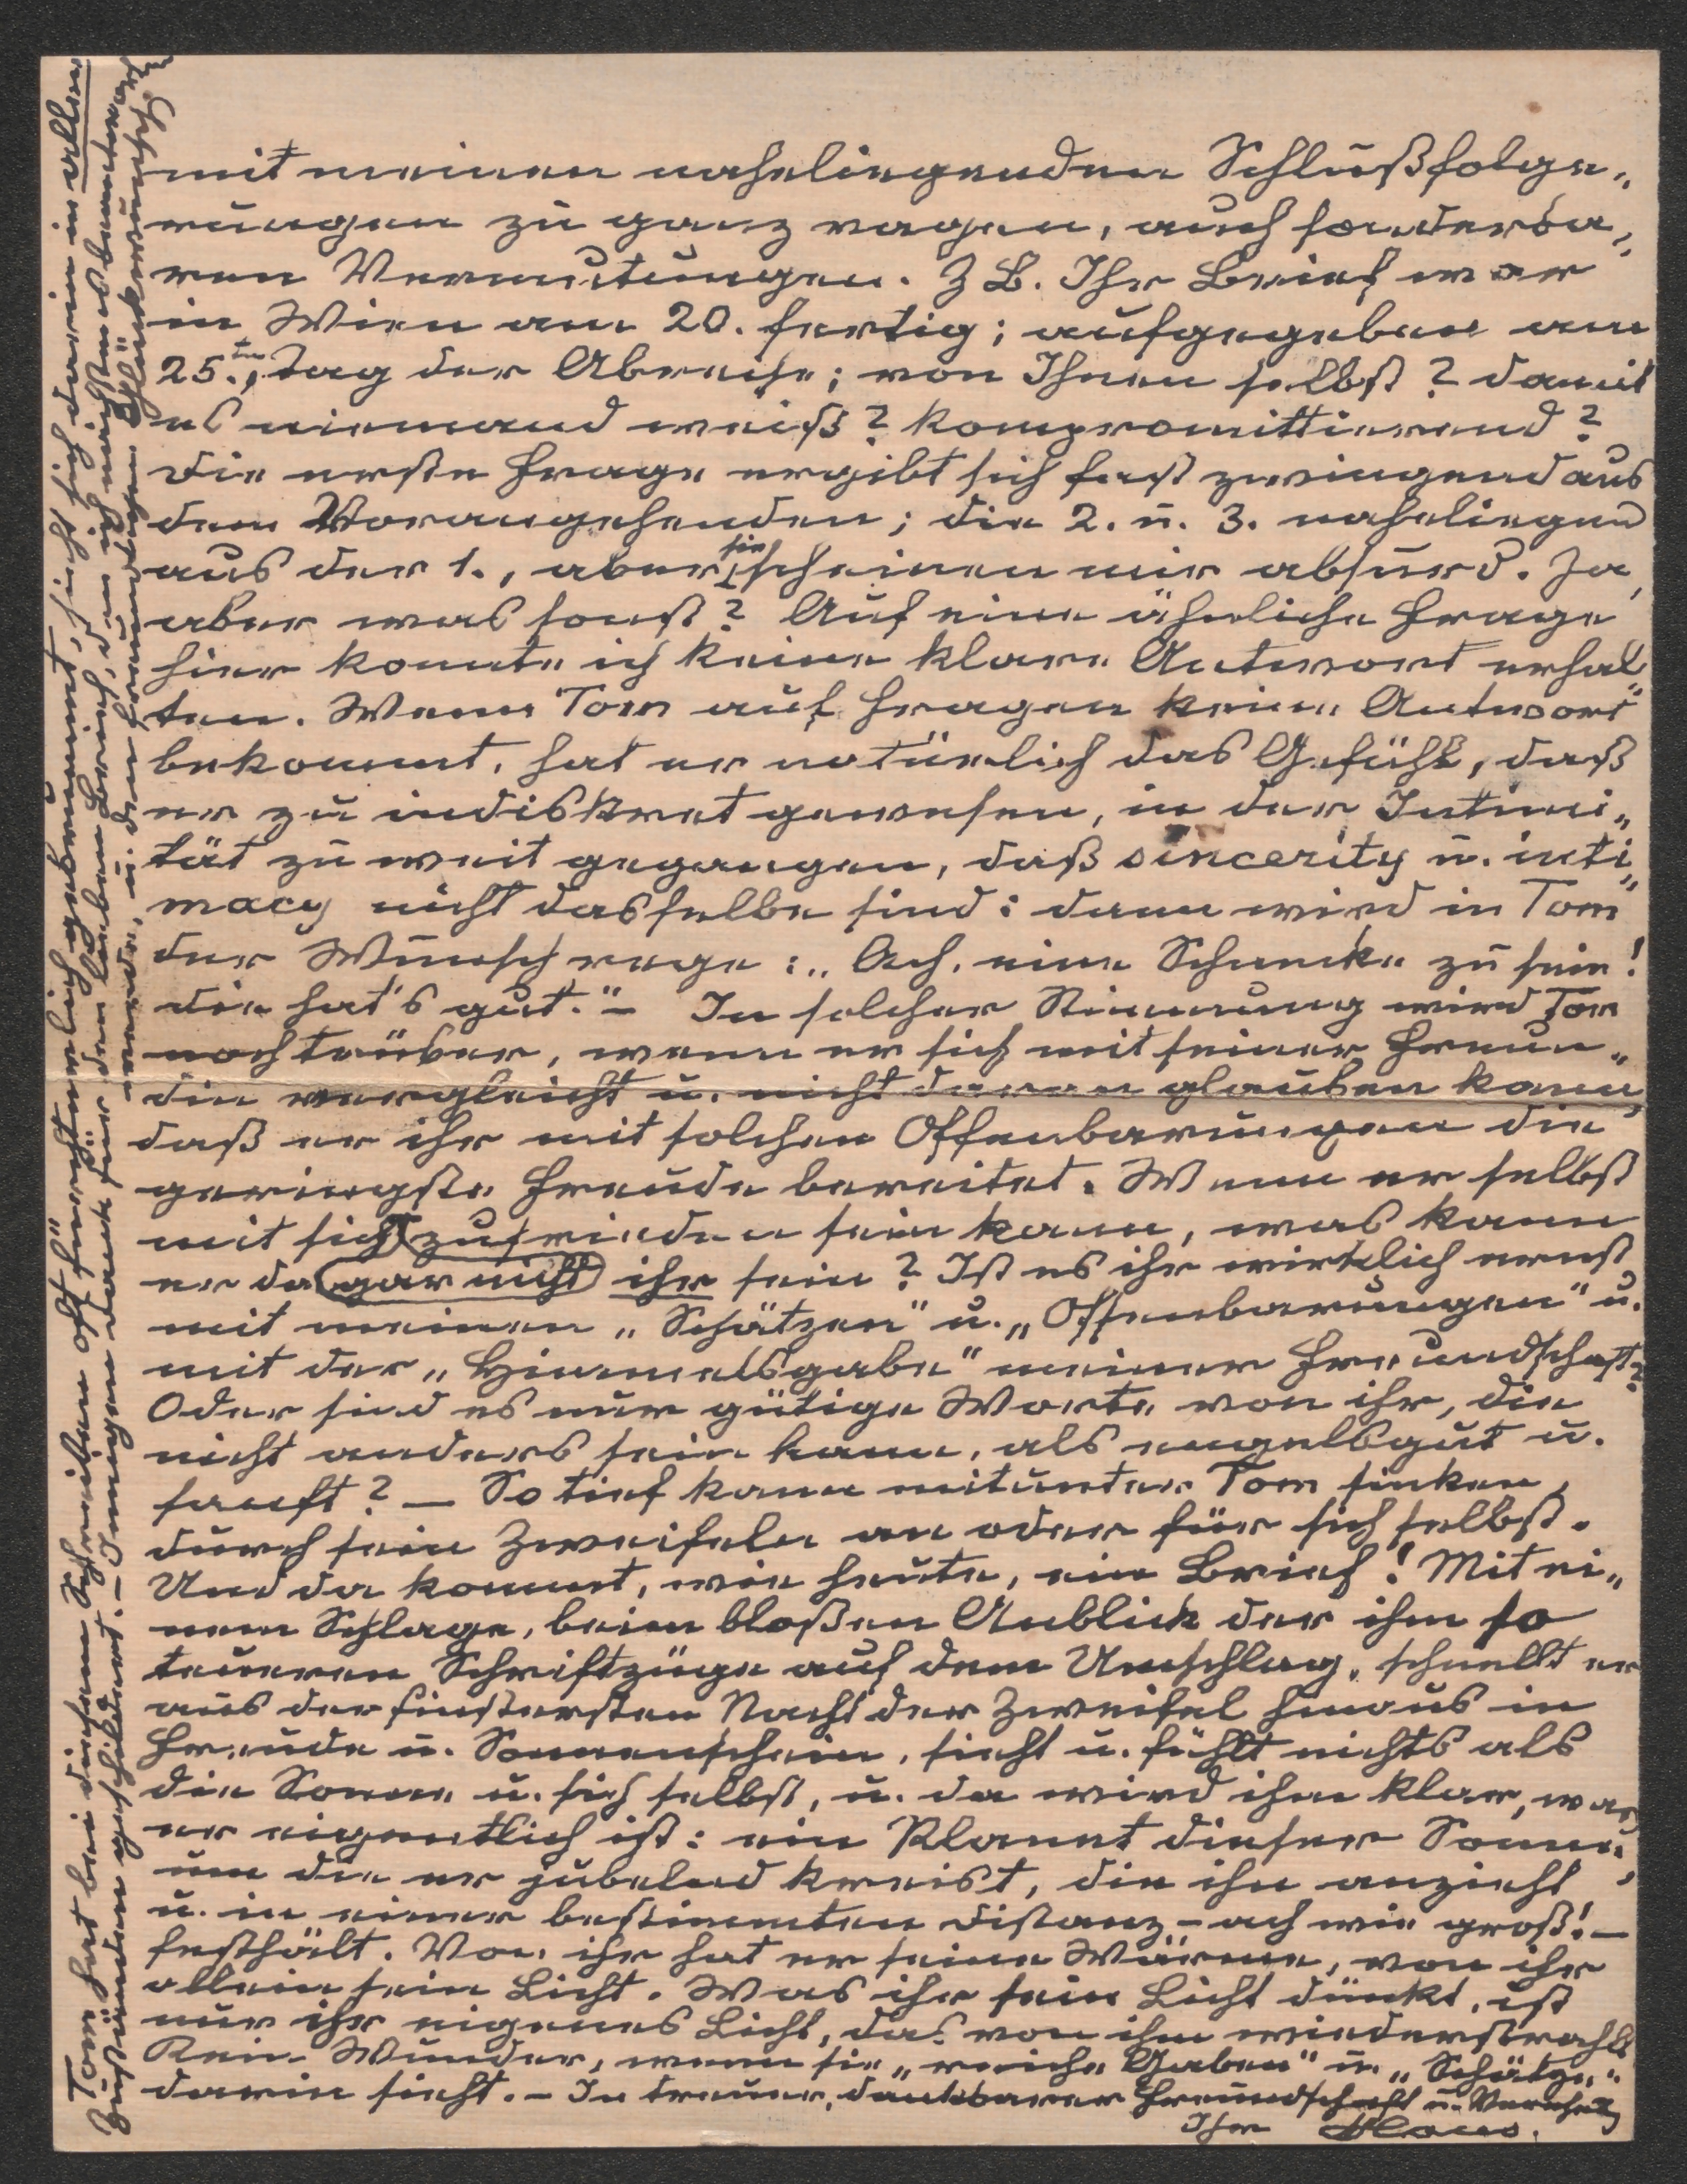 mit meinen naheliegenden Schlußfolge„
rungen zu ganz vagen, auch sonderba„
ren Vermutungen. Z B. Ihr Brief war
in Wien am 20. fertig; aufgegeben am
25.ten, Tag der Abreise; von Ihnen selbst? damit
es niemand weiß? kompromittierend?
Die erste Frage ergibt sich fast zwingend aus
dem Vorangehenden; die 2. u. 3. naheliegend
aus der 1., aber sie scheinen mir absurd. Ja,
aber was sonst? Auf eine ähnliche Frage
hier konnte ich keine klare Antwort erhal„
ten. Wenn Tom auf Fragen keine Antwort
bekommt, hat er natürlich das Gefühl, daß
er zu indiskret gewesen, in der Intimi„
tät zu weit gegangen, daß sincerity u. inti„
macy nicht dasselbe sind: dann wird in Tom
der Wunsch rege: „Ach, eine Schnecke zu sein!
die hat's gut." – In solcher Stimmung wird Tom
noch trüber, wenn er sich mit seiner Freun„
din vergleicht u. nicht daran glauben kann,
daß er ihr mit solchen Offenbarungen die
geringste Freude bereitet. Wenn er selbst
mit sich gar nicht zufrieden sein kann, was kann
er da ihr sein? Ist es ihr wirklich ernst
mit meinen „Schätzen" u. „Offenbarungen" u.
mit der „Himmelsgabe" meiner Freundschaft?
Oder sind es nur gütige Worte von ihr, die
nicht anders sein kann, als engelsgut u.
sanft? – So tief kann mitunter Tom sinken,
durch sein Zweifeln an oder für sich selbst.
Und da kommt, wie heute, ein Brief! Mit ei„
nem Schlage, beim bloßen Anblick der ihm so
teueren Schriftzüge auf dem Umschlag, schnellt er
aus der finstersten Nacht der Zweifel hinaus in
Freude u. Sonnenschein, sieht u. fühlt nichts als
die Sonne u. sich selbst, u. da wird ihm klar, was
er eigentlich ist: ein Planet dieser Sonne,
um die er jubelnd kreist, die ihn anzieht
u. in einer bestimmten Distanz – ach wie groß! –
festhält. Von ihr hat er seine Wärme, von ihr
allein sein Licht. Was ihr sein Licht dünkt, ist
nur ihr eigenes Licht, das von ihm wiederstrahlt
Kein Wunder, wenn sie „reiche Gaben" u. „Schätze"
darin sieht. – In treuer, dankbarer Freundschaft u. Verehrg
Ihr
Tom hat bei diesem Schreiben oft fürchterlich gewimmert, sich darin in allen
Zuständen geschildert. – Innigen Dank für den lieben Brief,